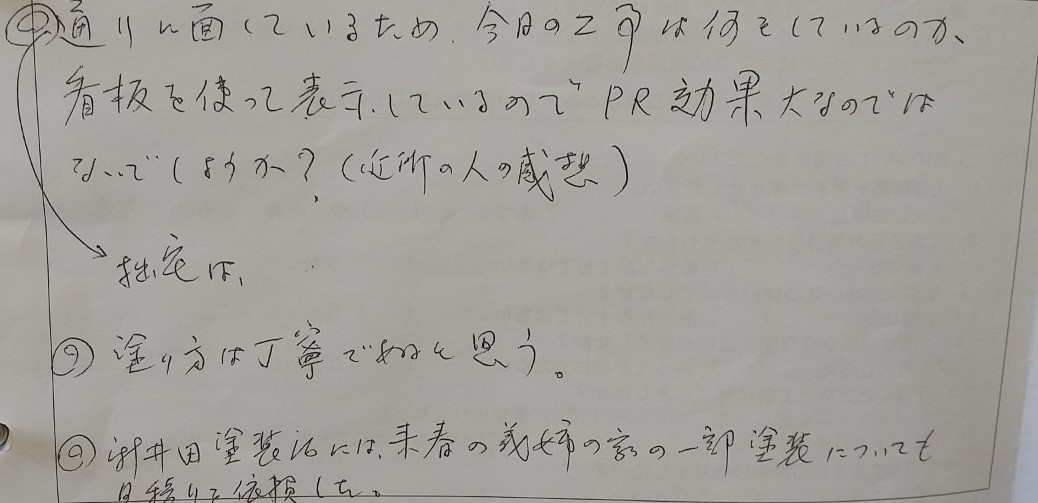 通りに面しているため、今日の工事は何をしているのか、
看板を使って表示しているのでPR効果大なのでは
ないでしょうか？（近所の人の感想）
拙宅は、
塗り方は丁寧であると思う。
新井田塗装店には、来春の義姉の家の一部塗装についても
見積りを依頼した。